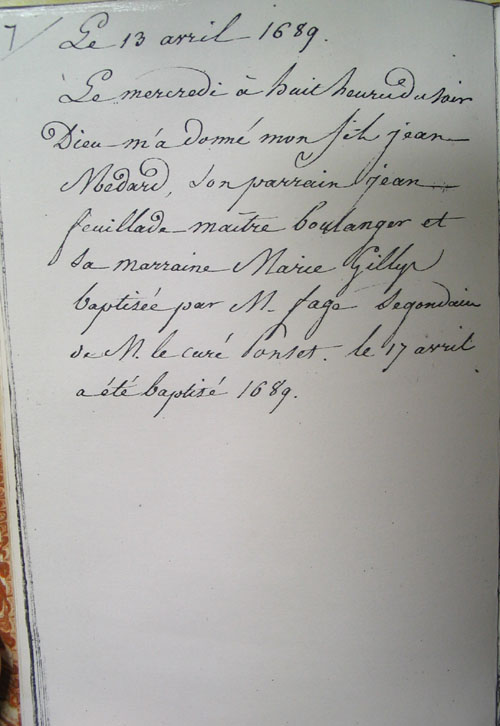 7
Le 13 avril 1689.
Le mercredi à huit heures du soir
Dieu m'a donné mon fils jean
Médard, Son parrain jean
feuillade maître boulanger et
sa marraine Marie Gilly
baptisée par M. fage Segondain
de M. le curé Ponset. le 17 avril
a été baptisé 1689.